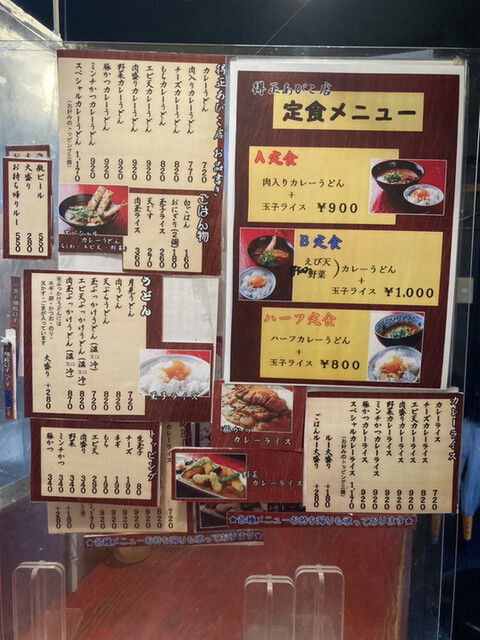 得正あびこ店 お品書き
カレーうどん 720
肉入りカレーうどん 770
チーズカレーうどん 820
もちカレーうどん 820
エビ天カレーうどん 920
肉盛りカレーうどん 920
野菜カレーうどん 920
豚かつカレーうどん 920
ミンチかつカレーうどん 920
スペシャルカレーうどん 1,170
(お好みのトッピング三種)
得正あびこ店
定食メニュー
A定食
肉入りカレーうどん
+
玉子ライス ¥900
B定食
えび天
野菜
カレーうどん
+
玉子ライス ¥1,000
ハーフ定食
ハーフカレーうどん
+
玉子ライス ¥800
瓶ビール 550
大盛り 280
お持ち帰りルー 550
スペシャル
カレーうどん
ごはん物
白ごはん 180
おにぎり(2個) 160
玉子ライス 210
天むす 260
肉玉ライス 360
うどん
月見うどん 720
肉うどん 720
天ぷらうどん 820
玉ぶっかけうどん(温・冷)
エビ天ぶっかけうどん(温・冷)
肉玉ぶっかけうどん(温・冷) 870
大盛り +280
玉子ライス
カレーライス
野菜
カレーライス
トッピング
生玉子 80
ネギ
もち
チーズ
エビ天
肉盛り
野菜
ミンチかつ 340
豚かつ 340
カレーライス
カレーライス 720
チーズカレーライス 820
エビ天カレーライス 920
肉盛りカレーライス 920
野菜カレーライス 920
ミンチかつカレーライス 920
豚かつカレーライス 920
スペシャルカレーライス 1,170
(お好みのトッピング三種)
ルー大盛り +280
ごはんルー大盛り
★各種メニューお持ち帰りも承っております★
★各種メニューお持ち帰りも承っております★